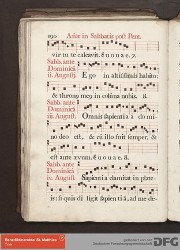 190 Aſſer in Sabbatis poſt Pent.
vir tu te calcavit. E u o u a e. 2.
Sabb. ante
Dominicā
ii. Auguſti. E go in altiſſimis habito:
& thronus meus in colūna nubis. 8.
Sabb. ante
Dominicā
iii. Auguſti. Omnis ſapientia à do mi-
no deo eſt, & cū illo fuit ſemper, &
eſt ante ævum. E u o u a e. 8.
Sabb. ante
Dominicā
iv. Auguſti. Sapientia clamitat in plate-
is: ſi quis di ligit ſapientiā, ad me de-
Benediktinerabtei St. Matthias
Trier
DFG